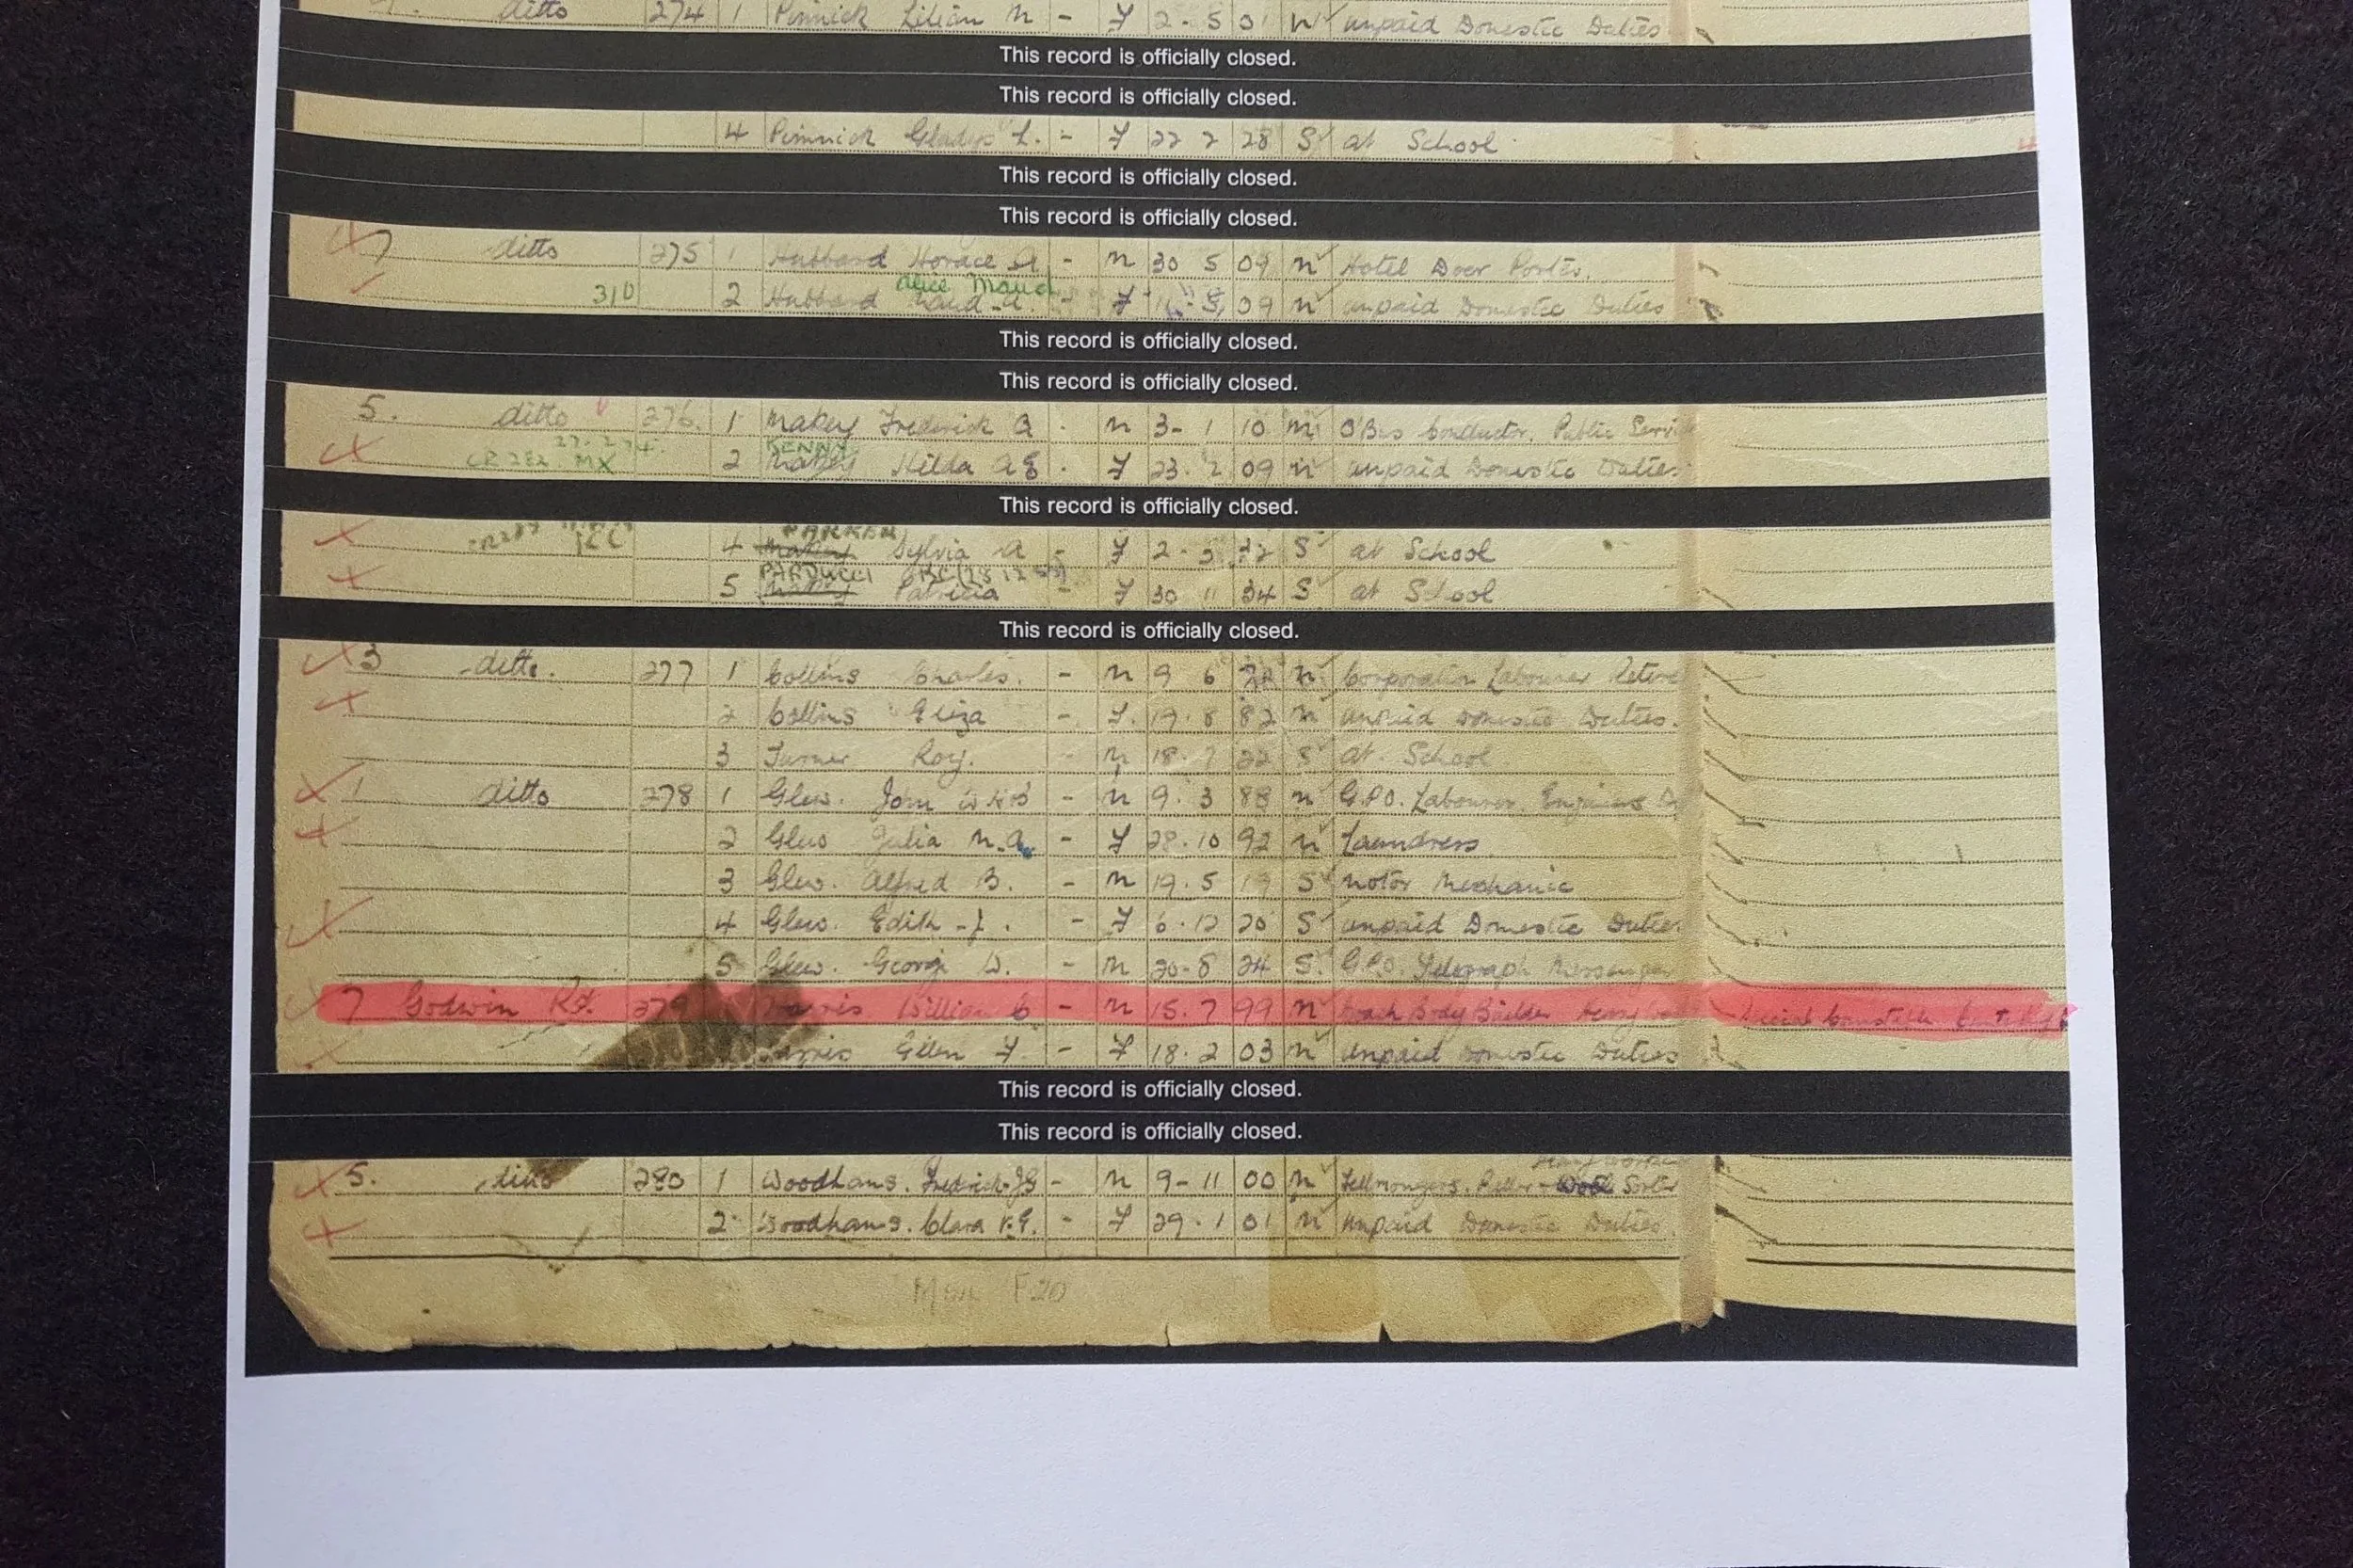 ditto 274 1 Pinnick Lilian M - F 2 - 5 01 W Unpaid Domestic Duties
This record is officially closed.
This record is officially closed.
4 Pinnick Gladys L. - F 22 2 28 S at School
This record is officially closed.
This record is officially closed.
7 ditto 275 1 Hubbard Horace A - M 30 5 09 M Hotel Door Porter.
Alice Maud
310 2 Hubbard Maud A. - F 09 M Unpaid Domestic Duties
This record is officially closed.
This record is officially closed.
5. ditto 276. 1 Makey Frederick A . M 3 - 1 10 M O'Bus Conductor, Public
KENNY
CR 283 MX 2 Makey Hilda A E . F 23. 2 09 M Unpaid Domestic Duties
This record is officially closed.
PARKER
4 Makey Sylvia A - F 2 - S at School
PARDUCCI
5 Makey Patricia - F 30 11 34 S at School
This record is officially closed.
3 ditto. 277 1 Collins Charles. - M 9 6 M Corporation Labourer
2 Collins Eliza - F. 19. 8 82 M Unpaid Domestic Duties.
3 Turner Roy. - M 18. 7 S at School
1 ditto 278 1 Glew. John - M 9. 3 88 M G.P.O. Labourer.
2 Glew Julia M. A. - F 28. 10 92 M Laundress
3 Glew. Alfred B. - M 19. 5 19 S Motor Mechanic
4 Glew. Edith - F 6. 12 20 S Unpaid Domestic Duties
5 Glew. George W. - M 20 - 8 24 S. G.P.O. Telegraph Messenger
7 Godwin Rd. 279 William C - M 15. 7 99 M Coach Body Builder Special Constable
Ellen F. - F 18. 2 03 M Unpaid Domestic Duties
This record is officially closed.
This record is officially closed.
5. ditto 280 1 Woodhams. Fredrick - M 9 - 11 00 M Fellmongers. Wool Sorter
2 Woodhams. Clara - F 29. 1 01 M Unpaid Domestic Duties
F 20